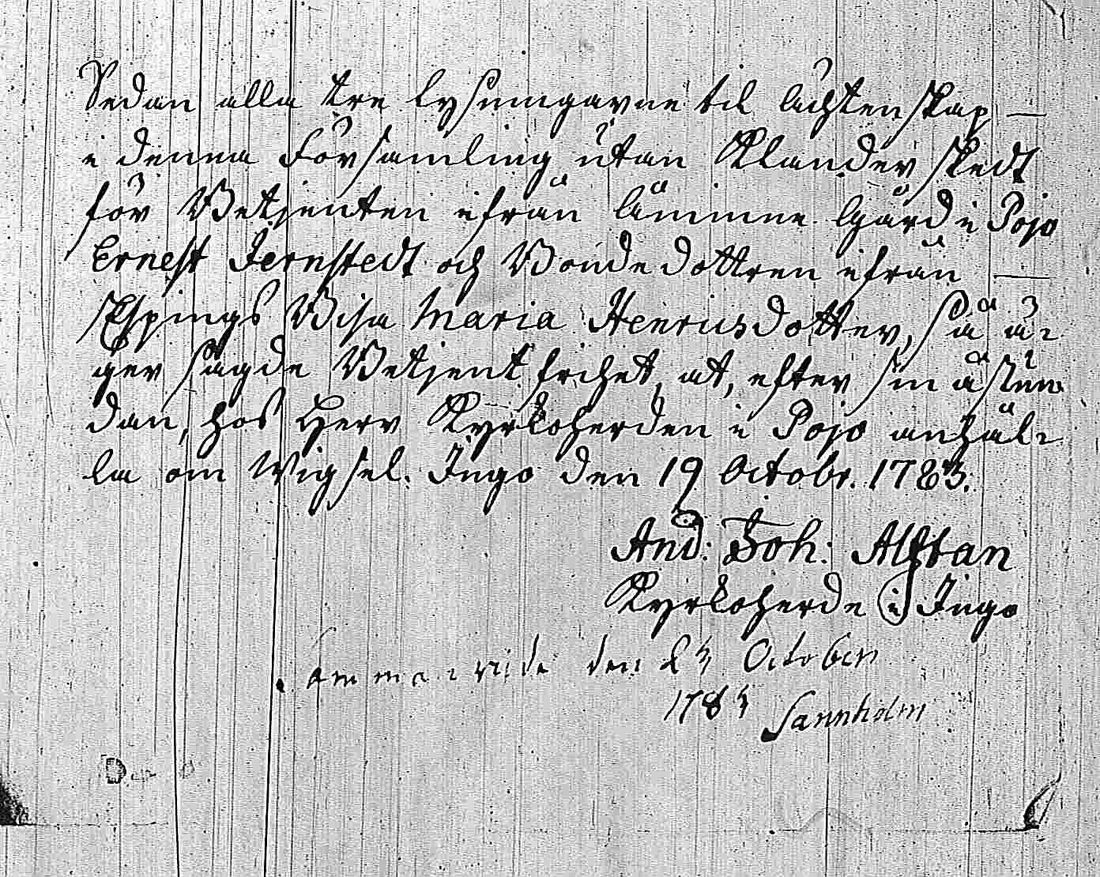 Sedan alla tre lysningarne til ächtenskap
i denna Församling utan Klander skedt
för Betjenten ifrån Lämmne Gård i Pojo
Ernest Jernstedt och Bonde dottren ifrån
Espings Bisa Maria Henricsdotter, så ä-
ger sagde Betjent frihet, at, efter sin åstun-
dan, hos Herr Kyrkoherden i Pojo anhål-
la om Wigsel. Ingo den 19 Octobr. 1783.
And: Joh: Alftan
Kyrkoherde i Ingo
den 23 October
1783 Sannholm